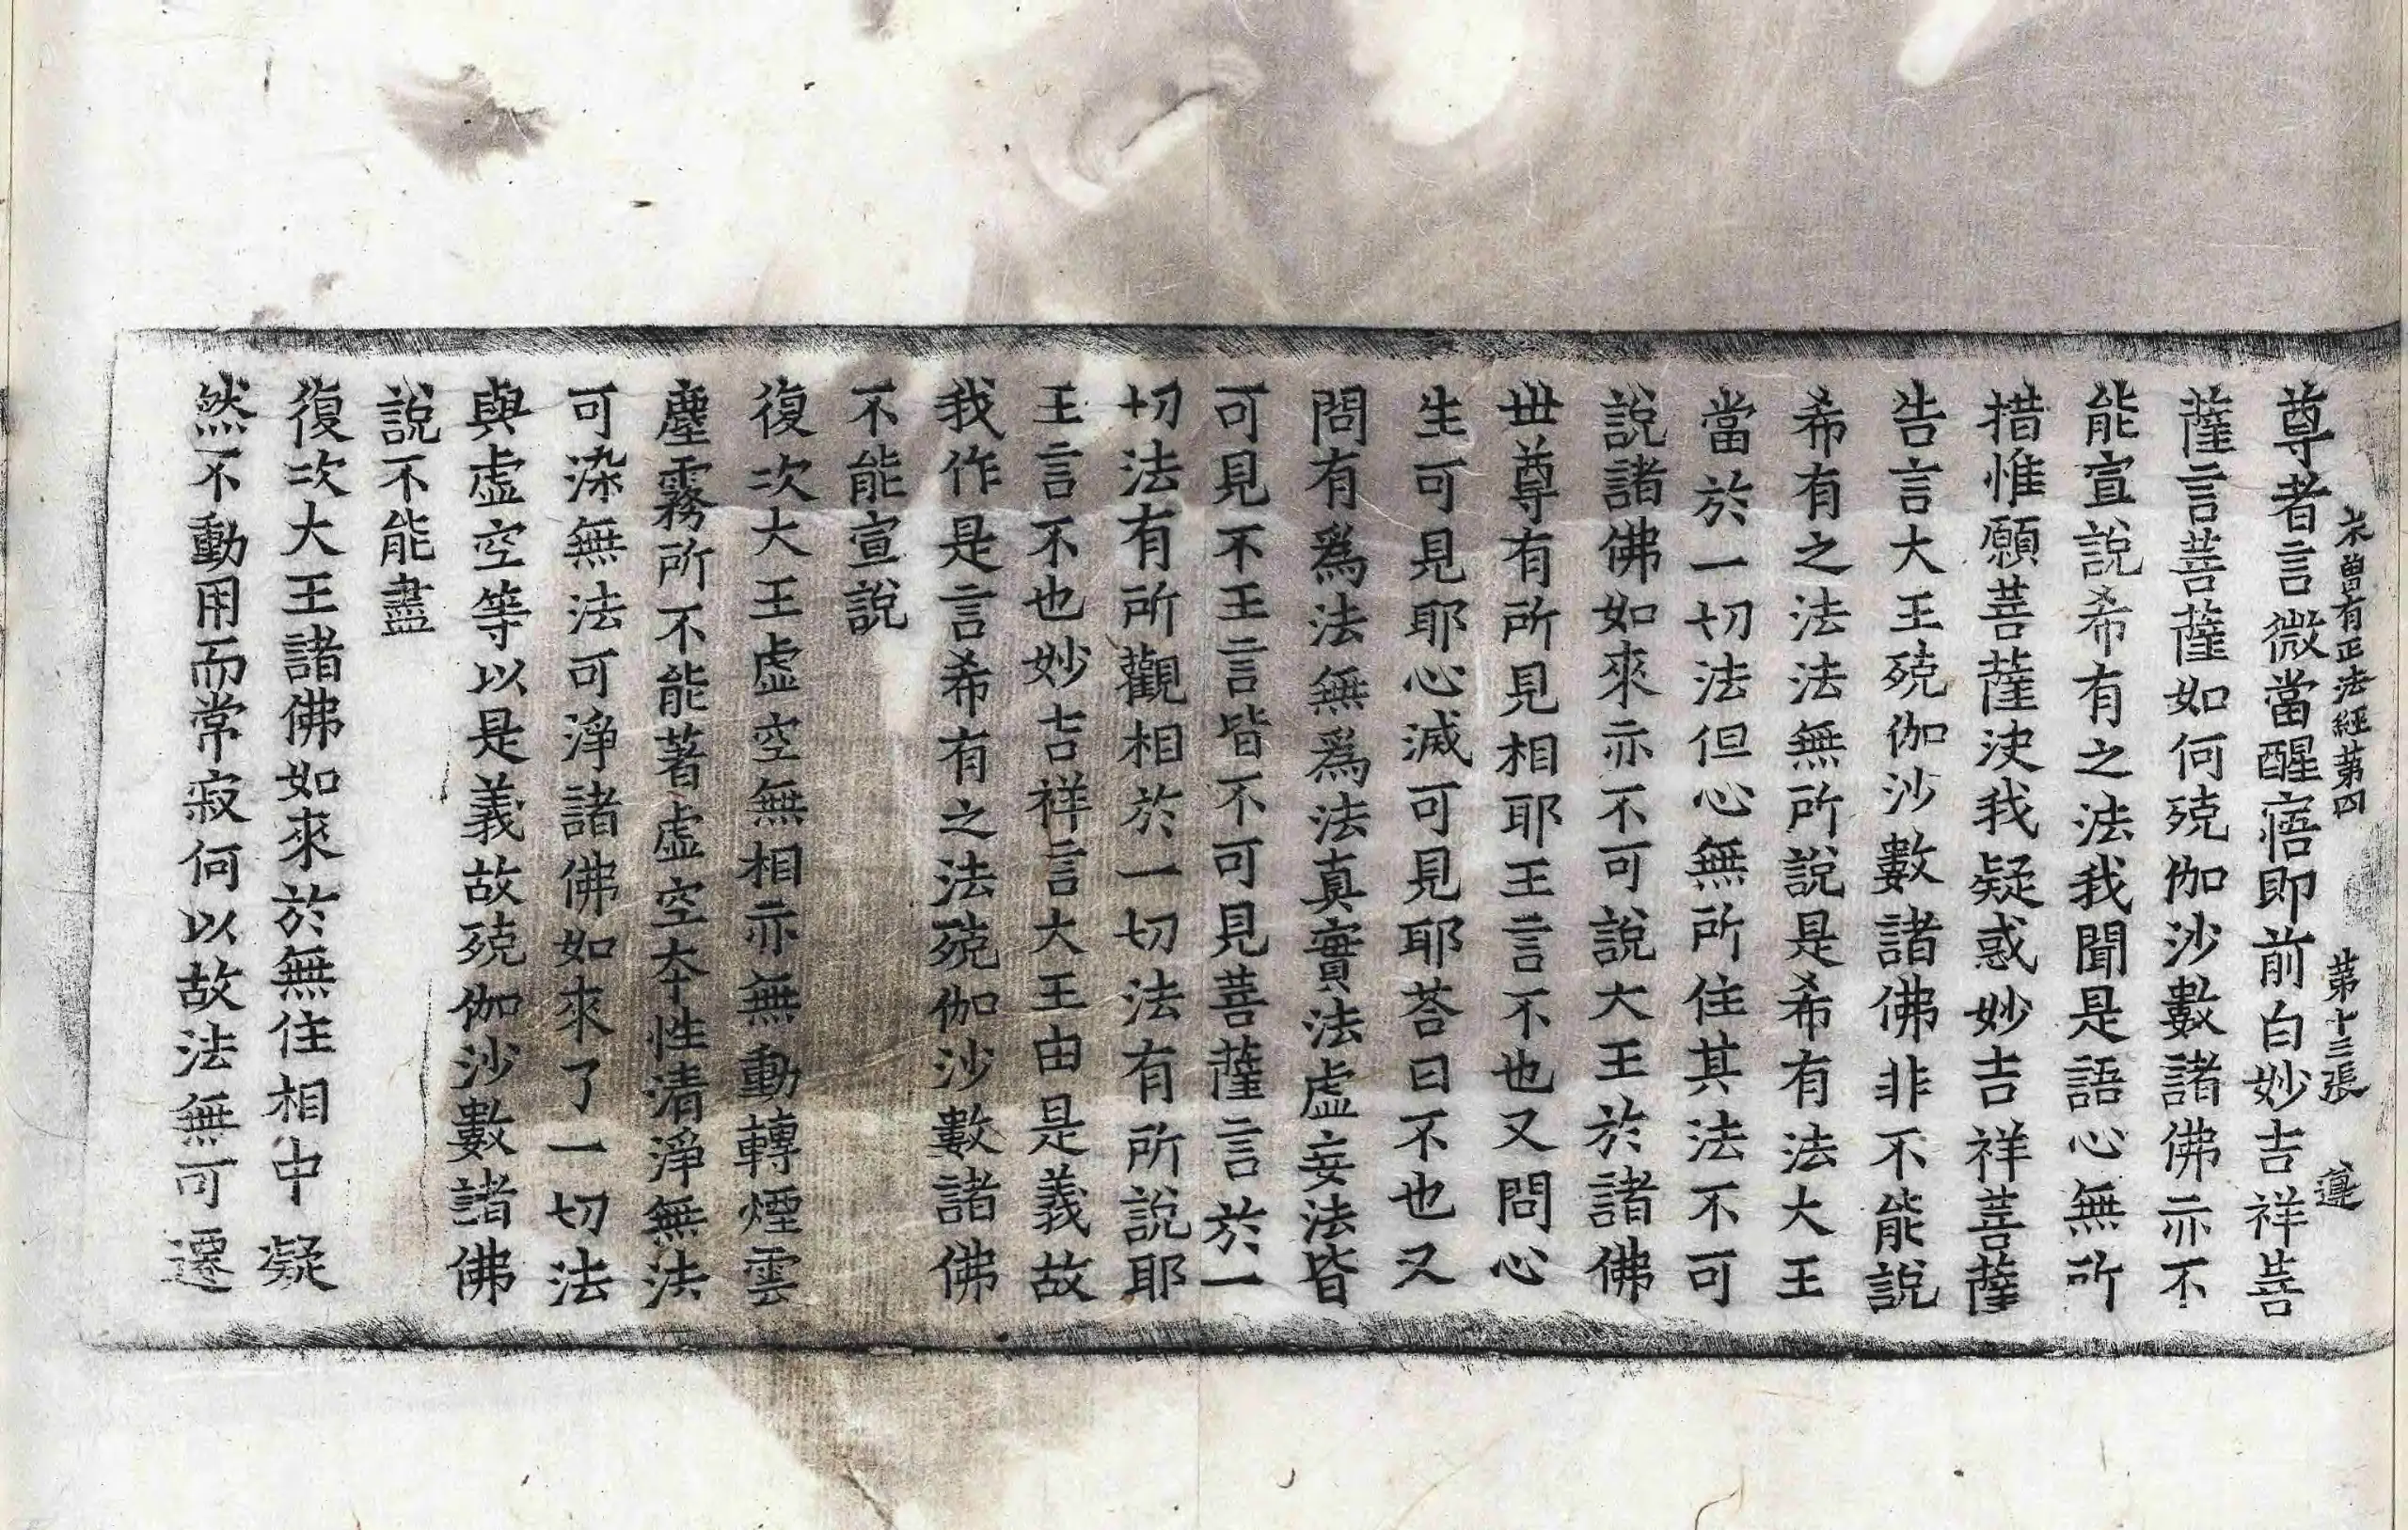 未曾有正法經第四 第十三張 遵
尊者言微當醒寤即前白妙吉祥菩
薩言菩薩如何殑伽沙數諸佛亦不
能宣說希有之法我聞是語心無所
措惟願菩薩決我疑惑妙吉祥菩薩
告言大王殑伽沙數諸佛非不能說
希有之法法無所說是希有法大王
當於一切法但心無所住其法不可
說諸佛如來亦不可說大王於諸佛
世尊有所見相耶王言不也又問心
生可見耶心滅可見耶荅曰不也又
問有爲法無爲法真實法虛妄法皆
可見不王言皆不可見菩薩言於一
切法有所觀相於一切法有所說耶
王言不也妙吉祥言大王由是義故
我作是言希有之法殑伽沙數諸佛
不能宣說
復次大王虛空無相亦無動轉煙雲
塵霧所不能著虛空本性清淨無法
可染無法可淨諸佛如來了一切法
與虛空等以是義故殑伽沙數諸佛
說不能盡
復次大王諸佛如來於無住相中凝
然不動用而常寂何以故法無可遷